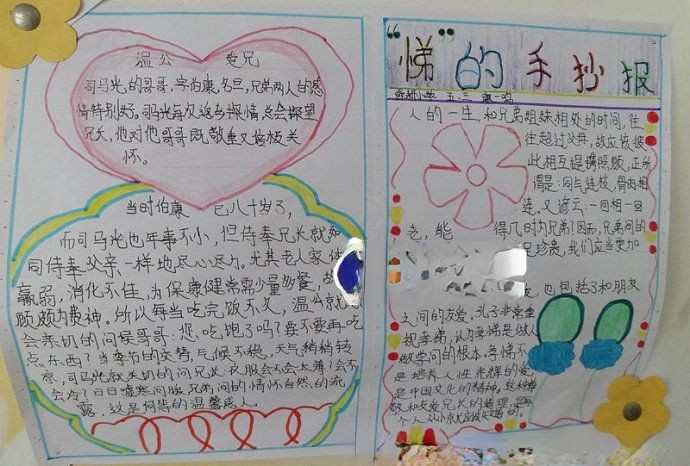 温公爱兄
司马光的哥哥,字伯康,名旦,兄弟两人的感
情特别好。司马光每次返乡探情,总会探望
兄长,他对他哥哥既敬重又爱极关
怀。
当时伯康 已八十岁了,
而司马光也年事不小,但侍奉兄长就如
同侍奉父亲一样地尽心尽力。尤其老人家体
羸弱,消化不佳,为保康健常需少量多餐,
顾颇为费神。所以每当吃完饭不久,温公就
会亲切的问候哥哥:您吃饱了吗?要不要再吃
点东西?当季节的交替,气候不稳,天气稍稍转
凉,司马光就关切的问兄长:衣服会不会太薄?会不
会冷?日日嘘寒问暖,兄弟间的情怀自然的流
露,这是何等的温馨感人。
“悌”的手抄报
小学 五三
人的一生,和兄弟姐妹相处的时间,往
往超过父母,故应该彼
此相互提携照顾,正所
谓是:同气连枝,骨肉相
连。又谚云:一回相一回
老,能 得几时为兄弟!因而,兄弟间的
珍贵,我们应当更加
爱,也包括了和朋友
之间的友爱,孔子非常重
视孝悌,认为孝悌是做人
做学问的根本。孝悌不
是培养人性光辉的爱
是中国文化的精神,这种尊
敬和友爱兄长的道理,是每
个人从小就应该知晓的。